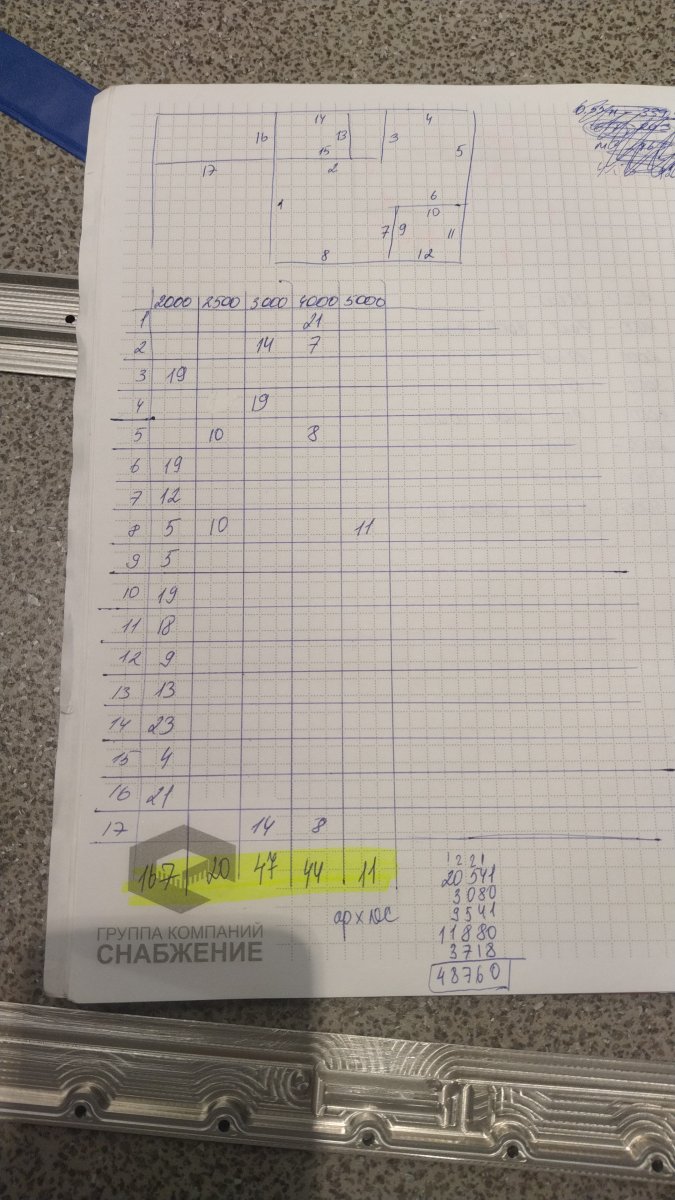 14 4
16 13 3
15 5
17 2
6
1 10
7 9 11
8 12
2000 2500 3000 4000 5000
1 21
2 14 7
3 19
4 19
5 10 8
6 19
7 12
8 5 10 11
9 5
10 19
11 18
12 9
13 13
14 23
15 4
16 21
17 14 8
167 20 47 44 11
1 2 2 1
20 541
3 080
9 541
11 880
3 718
48760
ГРУППА КОМПАНИЙ
СНАБЖЕНИЕ